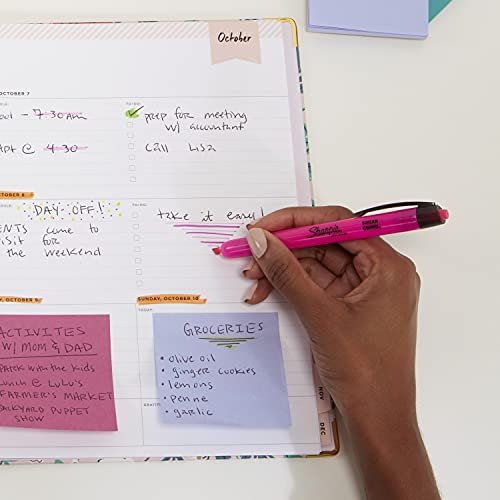 October
OCTOBER 7
TO DO:
- 7:30 AM
prep for meeting
w/ accountant
@ 4:30
Call Lisa
OCTOBER 8
DAY OFF!
TO DO:
take it easy!
come to
for
the weekend
Sharpie
SMEAR GUARD
, OCTOBER 9
SUNDAY, OCTOBER 10
TODAY:
ACTIVITES
W/ MOM & DAD
PARK WITH THE KIDS
LUNCH @ LULU'S
FARMER'S MARKET
BACKYARD PUPPET
SHOW
GROCERIES
• olive oil
• ginger cookies
• lemons
• penne
• garlic
NOV
DEC